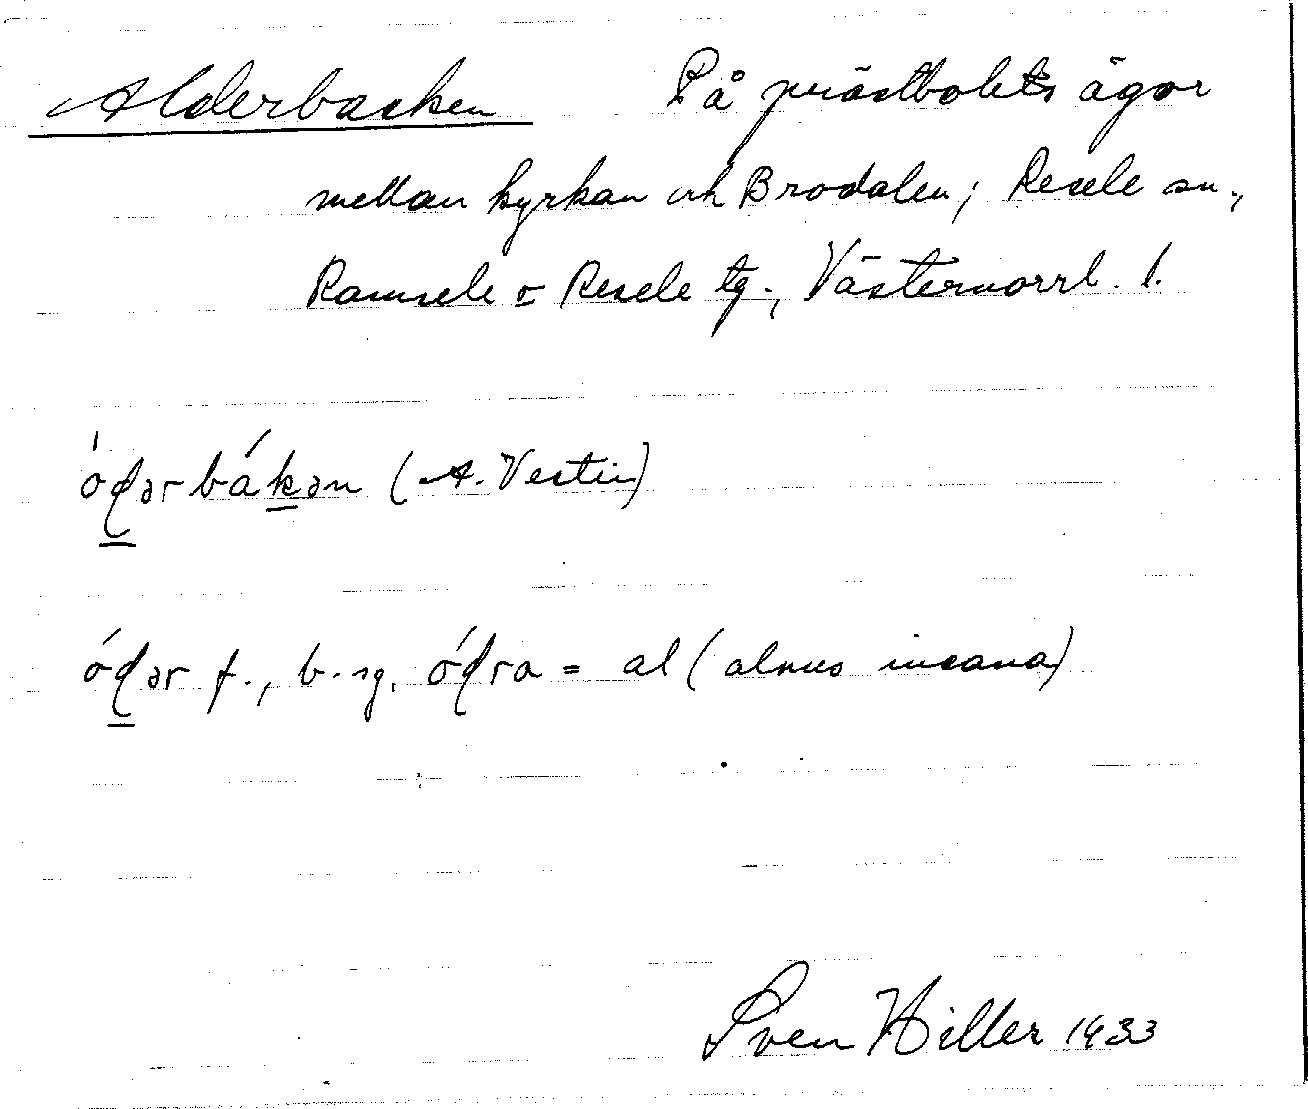 Alderbacken På prästbolets ägor
mellan kyrkan och Brodalen; Resele sn.,
Ramsele o Resele tg., Västernorrl. l.
óɖərbákən (A. Vestin)
óɖər f., b. sg. óɖra = al (alnus incana)
Sven Hiller 1933